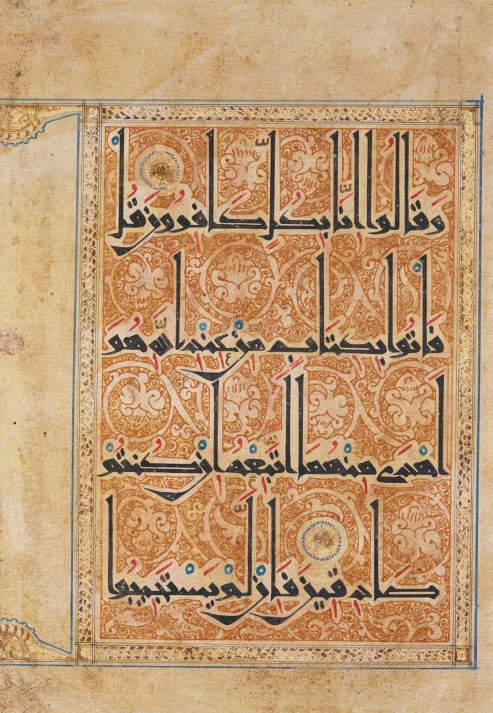 وَقَالُوا إِنَّا بِكُلٍّ كَافِرُونَ قُلْ
فَأْتُوا بِكِتَابٍ مِنْ عِنْدِ اللَّهِ هُوَ
أَهْدَىٰ مِنْهُمَا أَتَّبِعْهُ إِنْ كُنْتُمْ
صَادِقِينَ فَإِنْ لَمْ يَسْتَجِيبُوا